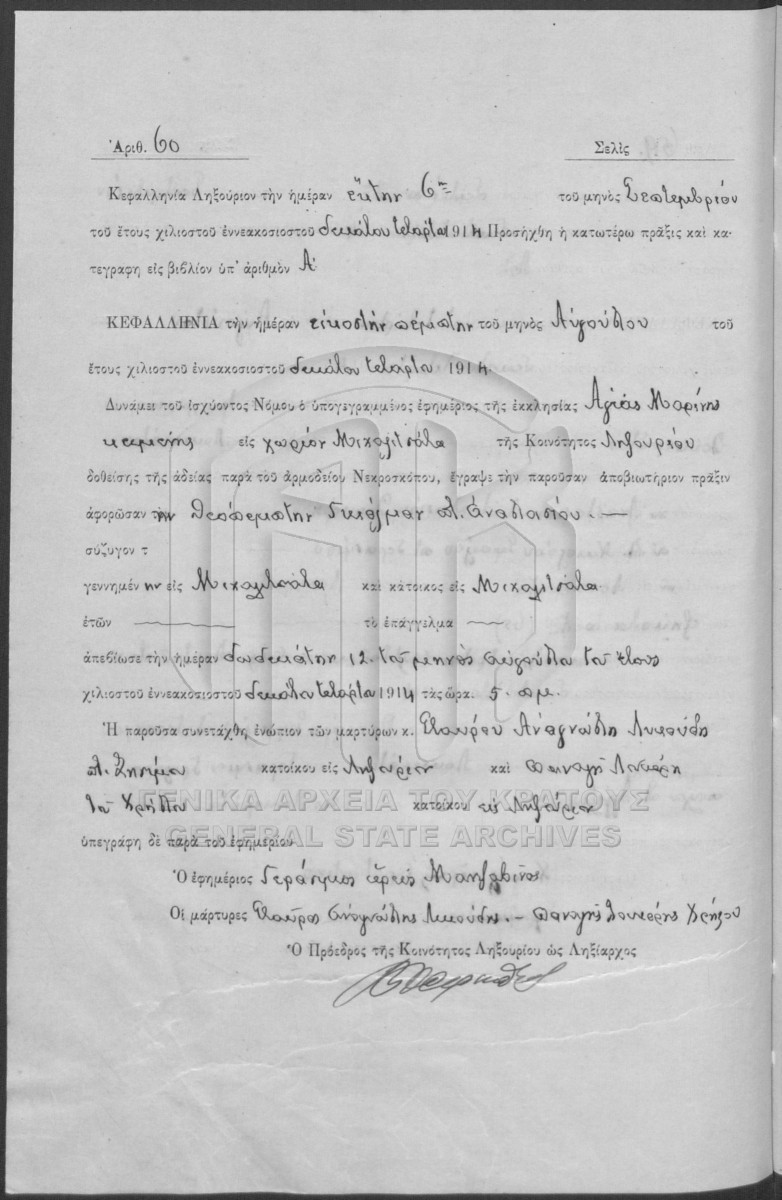 Ἀριθ. 60 Σελὶς
Κεφαλληνία Ληξούριον τὴν ἡμέραν ἕκτην 6ην τοῦ μηνὸς Σεπτεμβρίου
τοῦ ἔτους χιλιοστοῦ ἐννεακοσιοστοῦ δεκάτου τετάρτου 1914 Προσήχθη ἡ κατωτέρω πρᾶξις καὶ κα-
τεγραφη εἰς βιβλίον ὑπ' ἀριθμὸν Α'
ΚΕΦΑΛΛΗΝΙΑ τὴν ἡμέραν εἰκοστὴν πέμπτην τοῦ μηνὸς Αὐγούστου τοῦ
ἔτους χιλιοστοῦ ἐννεακοσιοστοῦ δεκάτου τετάρτου 1914
Δυνάμει τοῦ ἰσχύοντος Νόμου ὁ ὑπογεγραμμένος ἐφημέριος τῆς ἐκκλησίας Ἁγίας Μαρίνης
εἰς χωρίον Μιχαλιτσάτα τῆς Κοινότητος Ληξουρίου
δοθείσης τῆς ἀδείας παρὰ τοῦ ἁρμοδείου Νεκροσκόπου, ἔγραψε τὴν παροῦσαν ἀποβιωτήριον πρᾶξιν
ἀφορῶσαν τὴν Θεόπεμπτην π. Ἀναστασίου. —
σύζυγον τ
γεννημένην εἰς Μιχαλιτσάτα καὶ κάτοικος εἰς Μιχαλιτσάτα
ἐτῶν — τὸ ἐπάγγελμα —
ἀπεβίωσε τὴν ἡμέραν δωδεκάτην 12. τοῦ μηνὸς αὐγούστου τοῦ ἔτους
χιλιοστοῦ ἐννεακοσιοστοῦ δεκάτου τετάρτου 1914 τὰς ὥρα. 5. π.μ.
Ἡ παροῦσα συνετάχθη ἐνώπιον τῶν μαρτύρων κ. Σταύρου Ἀναγνώστη Λυκούδη
π. κατοίκου εἰς Ληξούριον καὶ Παναγῆ
τοῦ Χρήστου κατοίκου εἰς Ληξούριον
ΓΕΝΙΚΑ ΑΡΧΕΙΑ ΤΟΥ ΚΡΑΤΟΥΣ
GENERAL STATE ARCHIVES
ὑπεγράφη δὲ παρὰ τοῦ ἐφημερίου
Ὁ ἐφημέριος Γεράσιμος ἱερεὺς
Οἱ μάρτυρες Σταῦρος Ἀναγνώστης Λυκούδης. — Παναγῆς Χρήστου
Ὁ Πρόεδρος τῆς Κοινότητος Ληξουρίου ὡς Ληξίαρχος